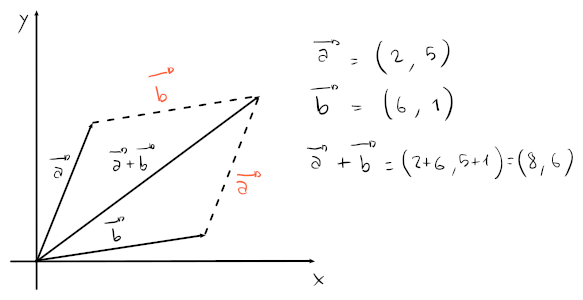 y
b⃗
a⃗
a⃗ + b⃗
a⃗
b⃗
x
a⃗ = (2, 5)
b⃗ = (6, 1)
a⃗ + b⃗ = (2+6, 5+1) = (8, 6)